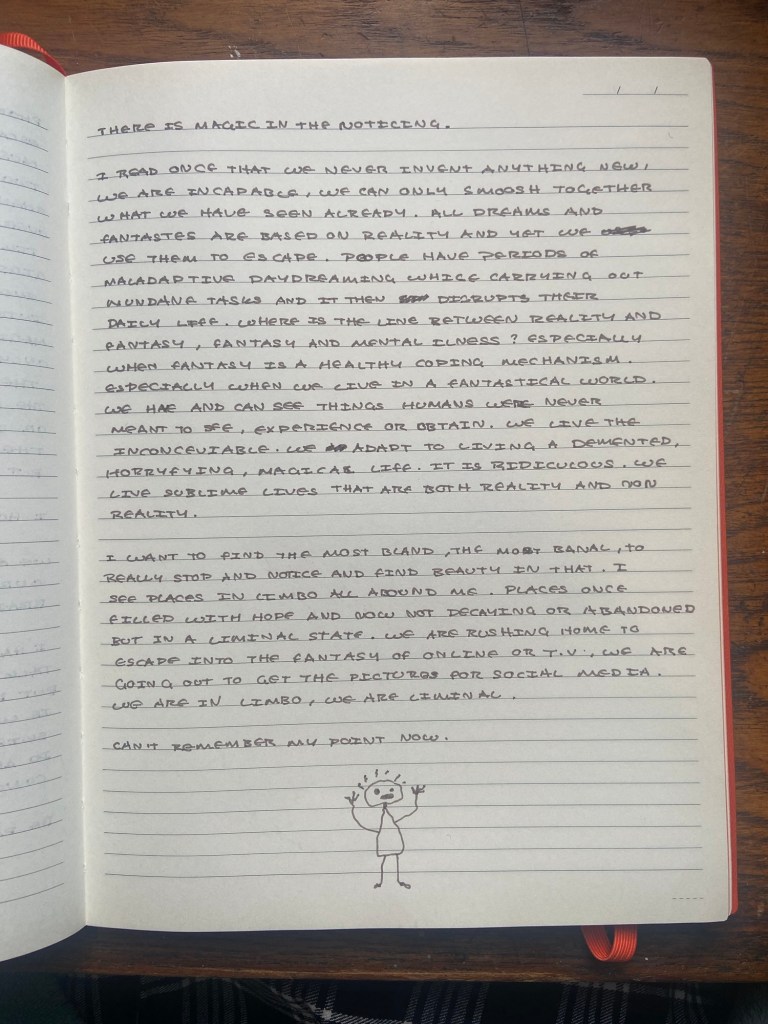 THERE IS MAGIC IN THE NOTICING.
I READ ONCE THAT WE NEVER INVENT ANYTHING NEW,
WE ARE INCAPABLE, WE CAN ONLY SMOOSH TOGETHER
WHAT WE HAVE SEEN ALREADY. ALL DREAMS AND
FANTASTES ARE BASED ON REALITY AND YET WE
USE THEM TO ESCAPE. PEOPLE HAVE PERIODS OF
MALADAPTIVE DAYDREAMING WHILE CARRYING OUT
MUNDANE TASKS AND IT THEN DISRUPTS THEIR
DAILY LIFE. WHERE IS THE LINE BETWEEN REALITY AND
FANTASY, FANTASY AND MENTAL ILNESS? ESPECIALLY
WHEN FANTASY IS A HEALTHY COPING MECHANISM.
ESPECIALLY WHEN WE LIVE IN A FANTASTICAL WORLD.
WE HAE AND CAN SEE THINGS HUMANS WERE NEVER
MEANT TO SEE, EXPERIENCE OR OBTAIN. WE LIVE THE
INCONCEVIABLE. WE ADAPT TO LIVING A DEMENTED,
HORRYFYING, MAGICAL LIFE. IT IS RIDICULOUS. WE
LIVE SUBLIME LIVES THAT ARE BOTH REALITY AND NON
REALITY.
I WANT TO FIND THE MOST BLAND, THE MOST BANAL, TO
REALLY STOP AND NOTICE AND FIND BEAUTY IN THAT. I
SEE PLACES IN LIMBO ALL AROUND ME. PLACES ONCE
FILLED WITH HOPE AND NOW NOT DECAYING OR ABANDONED
BUT IN A LIMINAL STATE. WE ARE RUSHING HOME TO
ESCAPE INTO THE FANTASY OF ONLINE OR T.V., WE ARE
GOING OUT TO GET THE PICTURES FOR SOCIAL MEDIA.
WE ARE IN LIMBO, WE ARE LIMINAL.
CAN'T REMEMBER MY POINT NOW.